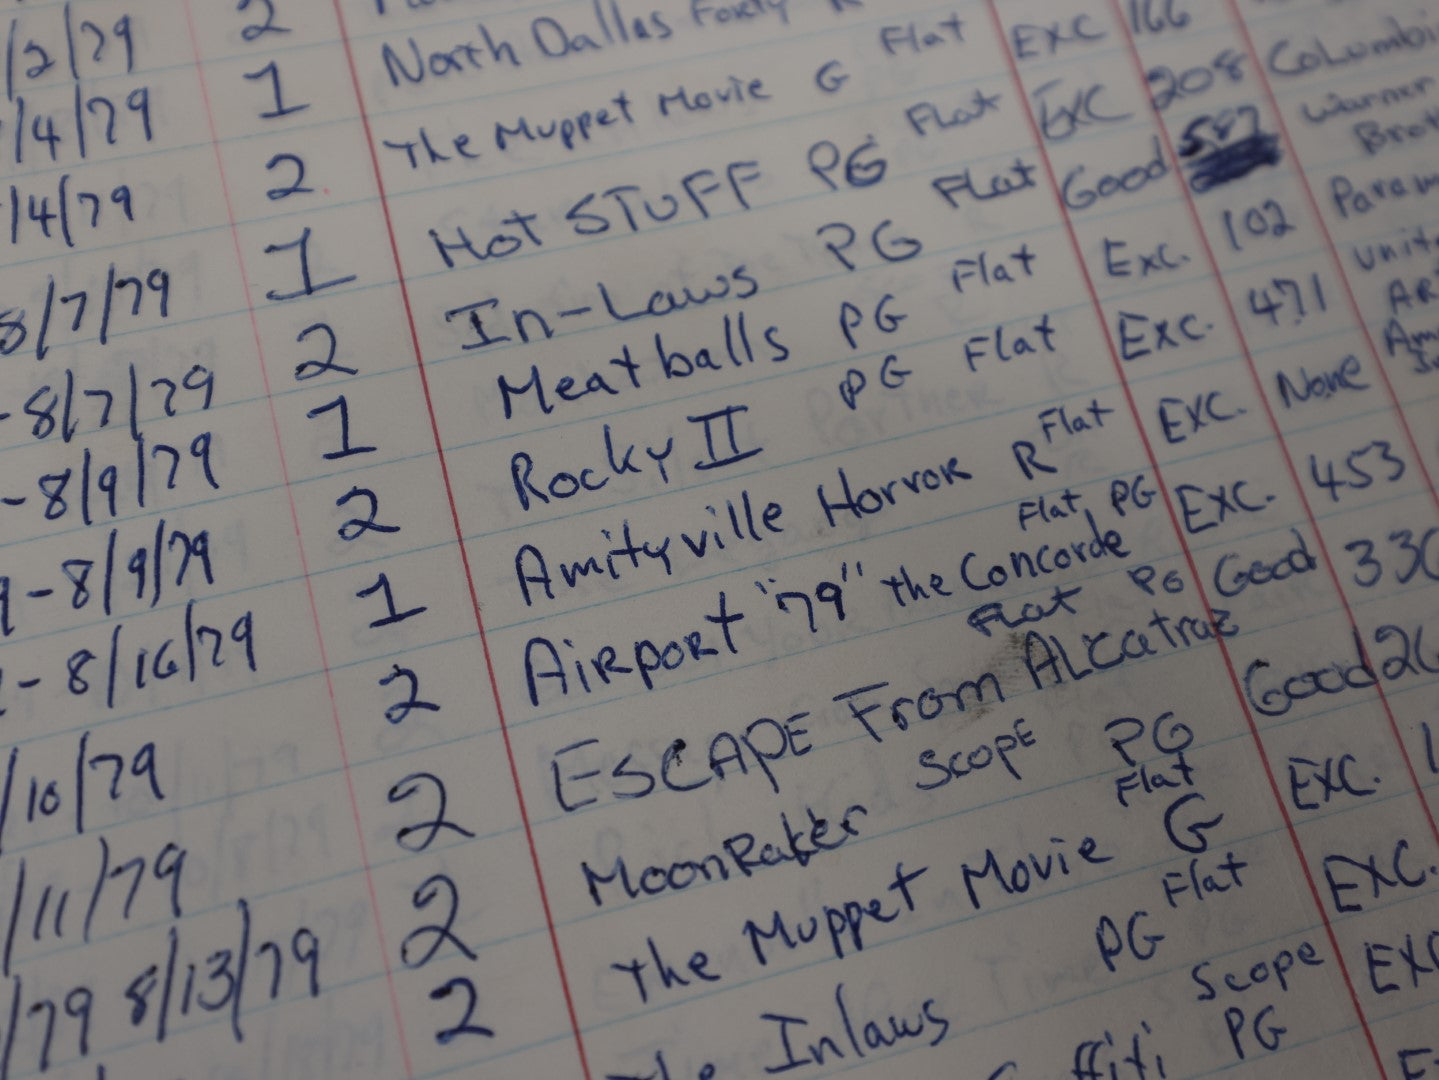 /2/79 2
North Dallas Forty R Flat EXC 166
/4/79 1 The Muppet Movie G Flat EXC 208 Columbia
/4/79 2 HOT STUFF PG Flat Good 587 Warner
8/7/79 1 In-Laws PG Flat Exc. 102 Param
-8/7/79 2 Meatballs PG Flat Exc. 471
-8/9/79 1 Rocky II PG Flat EXC. None
-8/9/79 2 Amityville Horror R Flat EXC. 453
-8/16/79 1 Airport "79" the Concorde Flat PG Good 330
/10/79 2 ESCAPE From ALcatraz Flat PG Good 26
/11/79 2 MoonRaker SCOPE PG EXC. 1
/79 8/13/79 2 The Muppet Movie G Flat EXC.
2 The Inlaws PG Flat EXC
ffiti Scope PG E